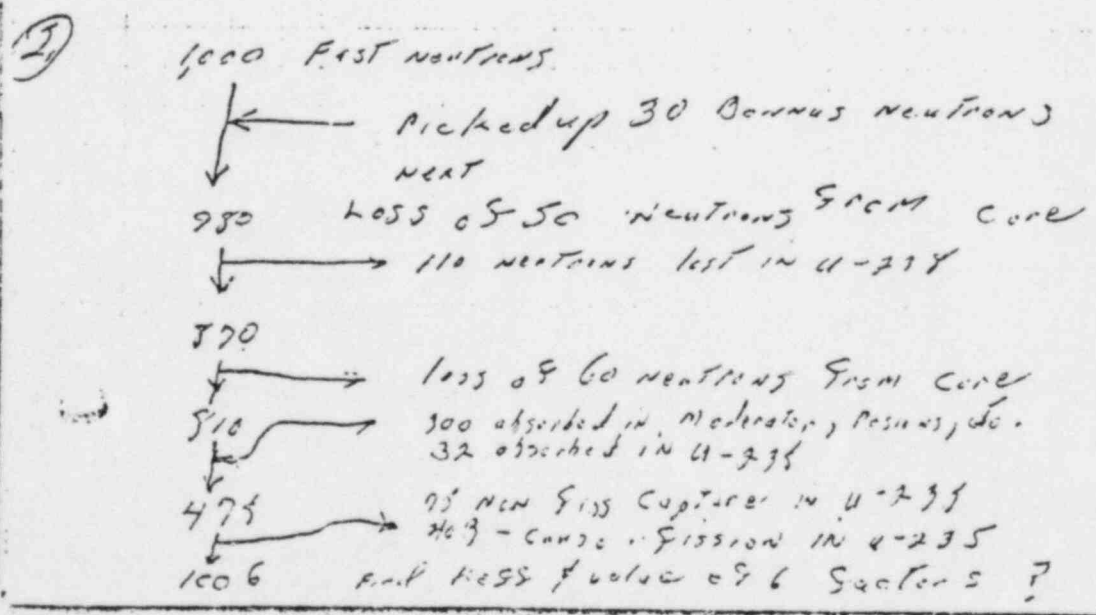 2
1,000 Fast Neutrons
Picked up 30 Bonnus Neutrons
Next
980 Loss of 50 Neutrons From Core
110 Neutrons lost in U-238
870
loss of 60 neutrons From Core
810
300 absorbed in Moderator, Posions, etc.
32 absorbed in U-238
478
75 Non Fiss Capture in U-235
403 - Cause Fission in U-235
1006 Find Keff & value of 6 Factors ?